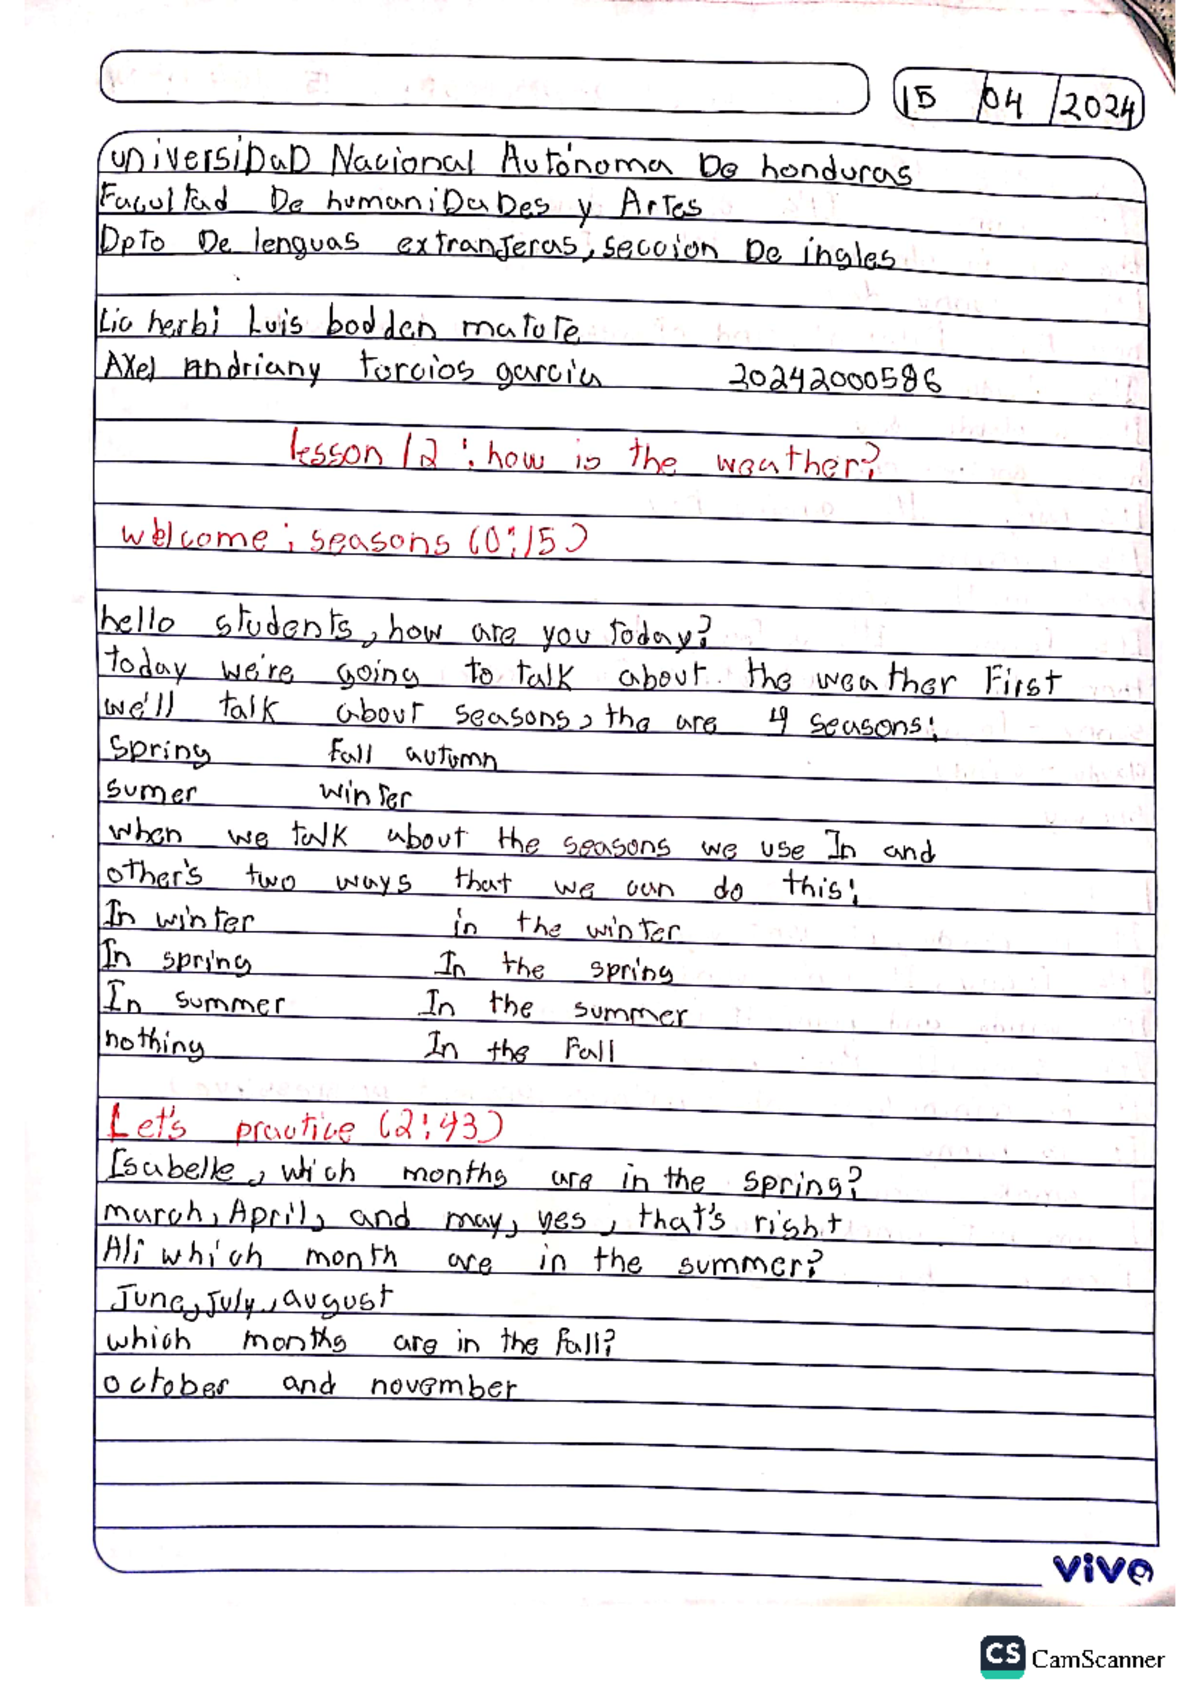 15 /04 /2024
universidad Nacional Autónoma De honduras
Facultad De humanidades y Artes
Dpto De lenguas extranjeras, seccion De ingles
Lic herbi Luis bodden matute
Axel Andriany torcios garcia 20242000586
lesson 12 : how is the weather?
welcome : seasons (0:15)
hello students, how are you today?
today we're going to talk about the weather First
we'll talk about seasons, the are 4 seasons:
spring Fall autumn
sumer winter
when we talk about the seasons we use In and
other's two ways that we can do this:
In winter in the winter
In spring In the spring
In summer In the summer
nothing In the Fall
Let's practice (2:43)
Isabelle, which months are in the spring?
march, April, and may, yes, that's right
Ali which month are in the summer?
June, July, august
which months are in the fall?
october and november
vive
CS CamScanner